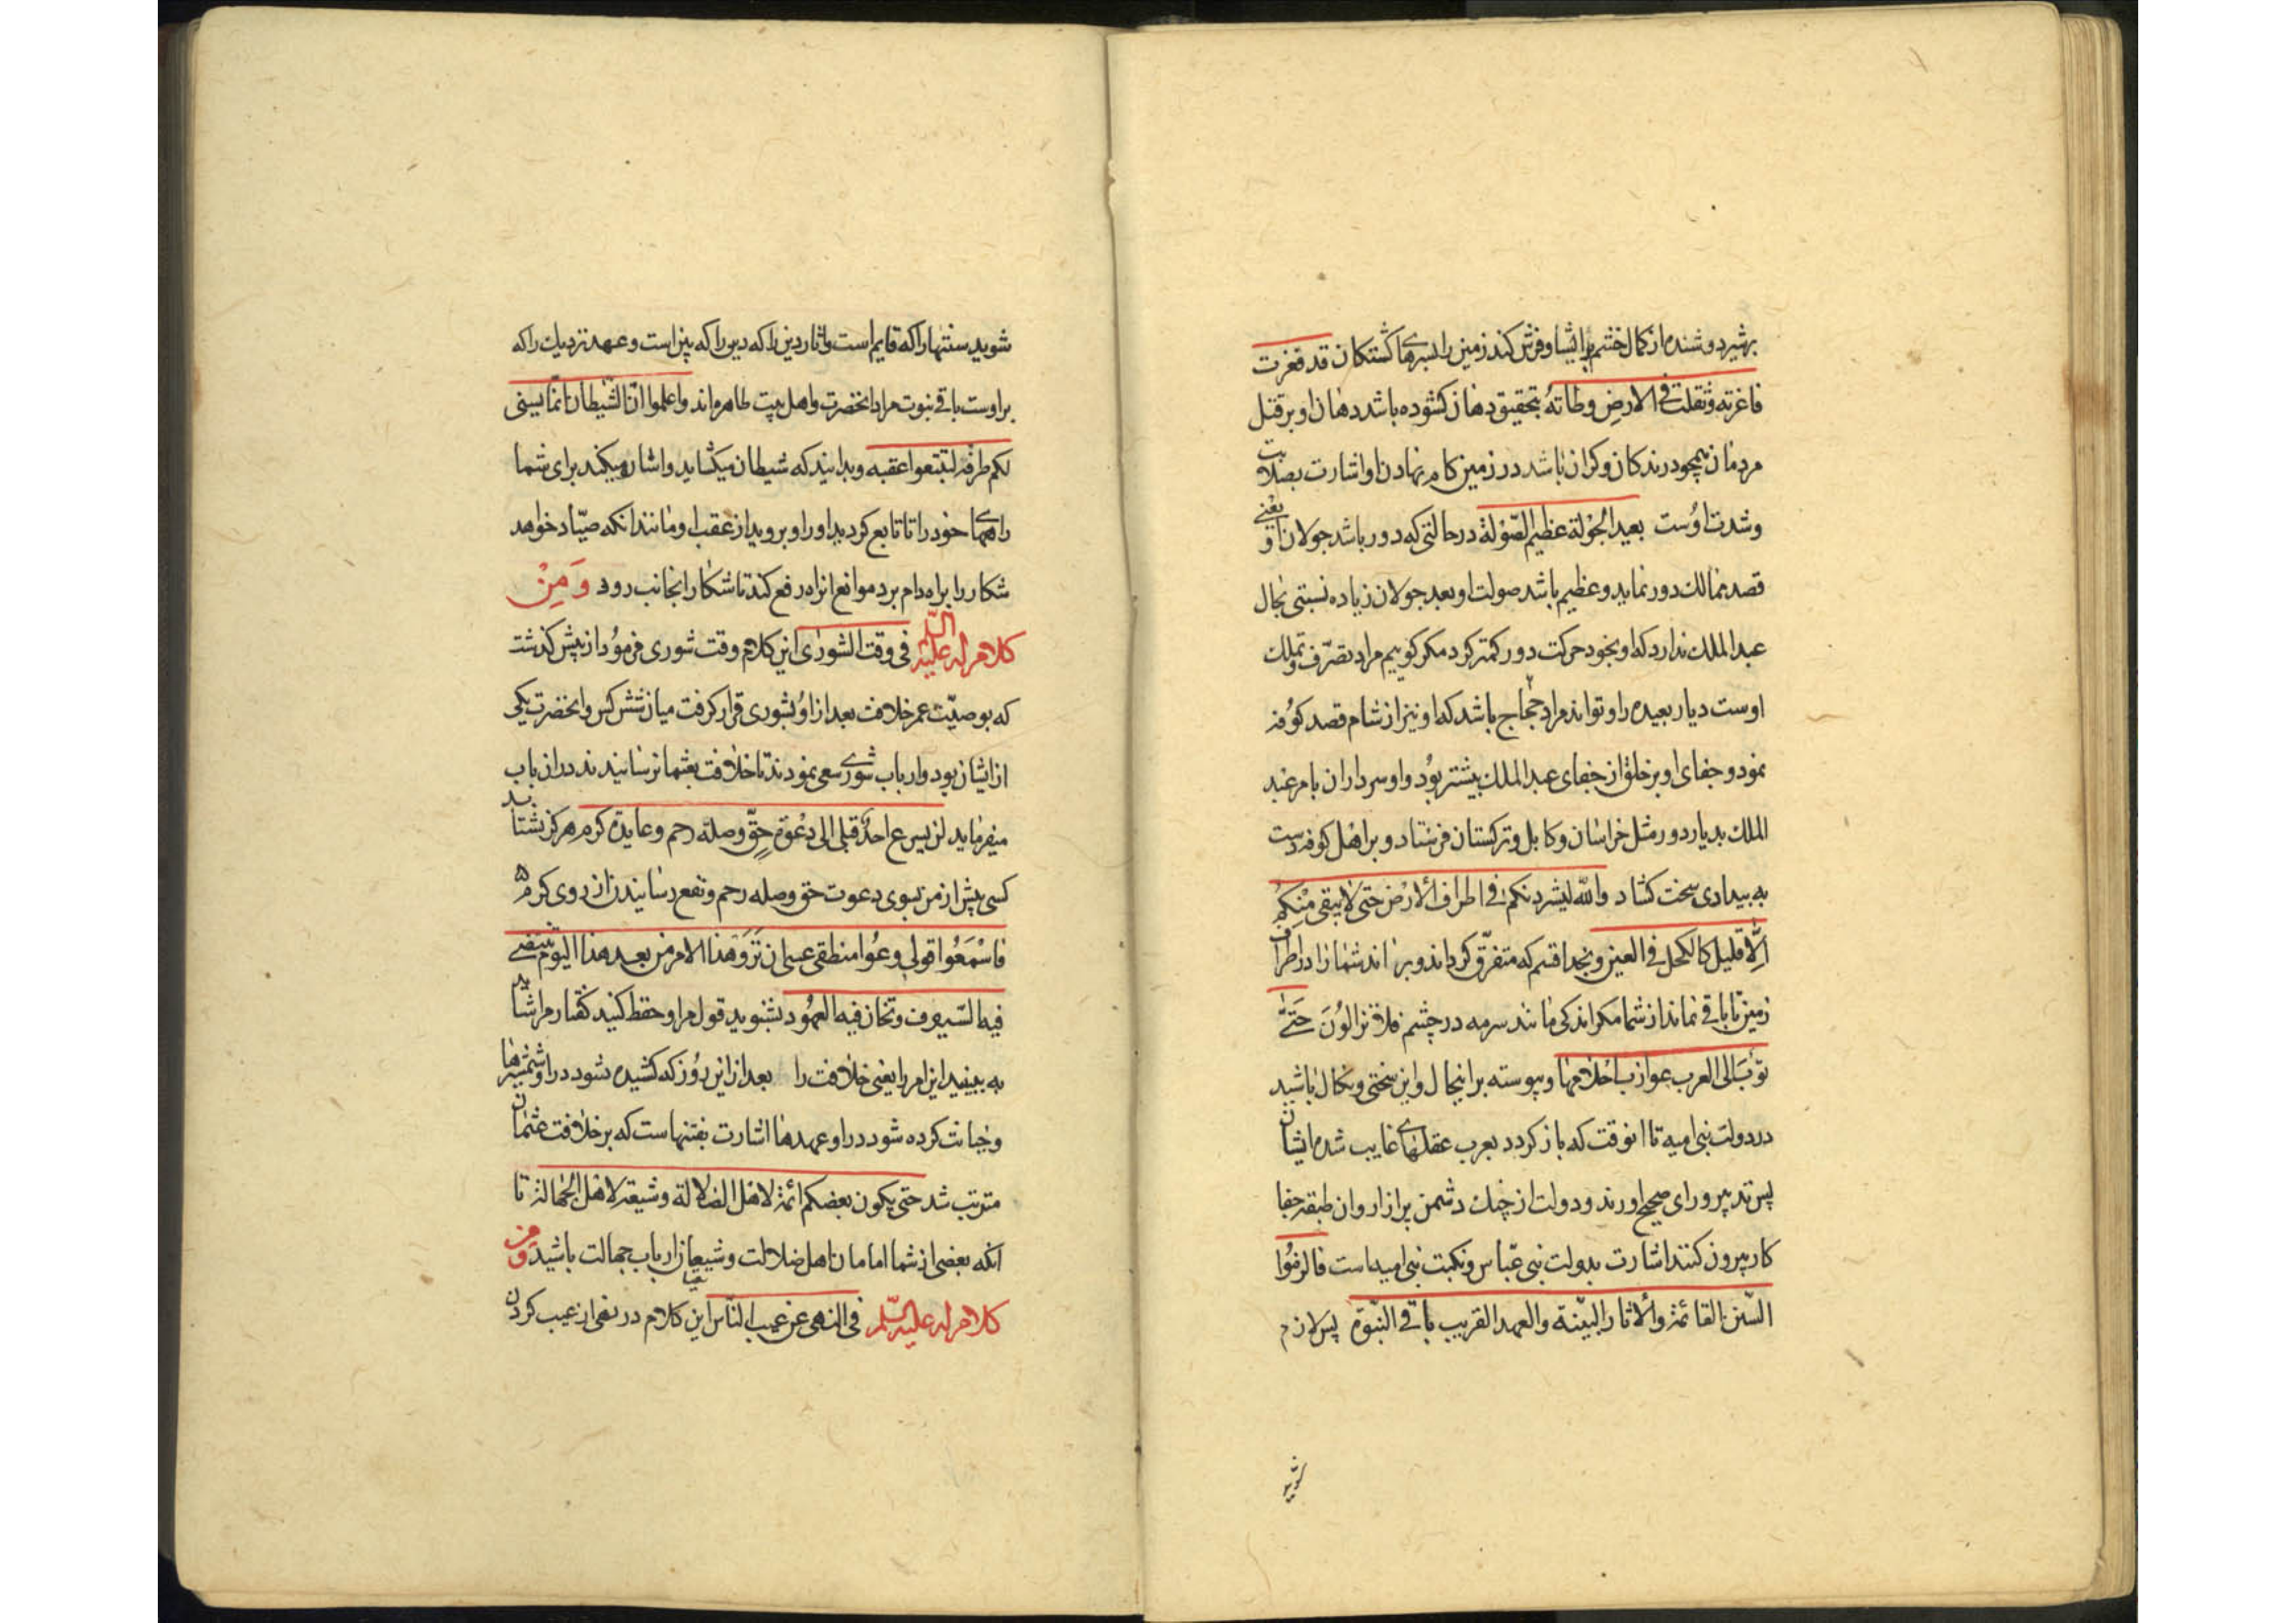 بر شیر دوشنده از کمال خشم بر ایشا و فرش کند زمین را بسرهای کشتکان قد فغرت
فاغرته و ثقلت فی الارض وطاته بتحقیق دهان کشوده باشد دهان او بر قتل
مردمان همچو درندکان و کران باشد در زمین کام نهادن او اشارت بصلابت
و شدت اوست بعید الجولة عظیم الصولة در حالتی که دور باشد جولان او یعنی
قصد ممالك دور نماید و عظیم باشد صولت او بعد جولان زیاده نسبتی بحال
عبد الملك ندارد که او بخود حرکت دور کمتر کرد مکر کوییم مراد تصرّف و تملك
اوست دیار بعیده را و تواند مراد حجاج باشد که او نیز از شام قصد کوفه
نمود و جفای او بر خلق از جفای عبد الملك بیشتر بود و او سرداران بامر عبد
الملك بدیار دور مثل خراسان و کابل و ترکستان فرستاد و بر اهل کوفه دست
به بیدادی سخت کشاد والله لیشردنکم فی اطراف الارض حتی لا یبقی منکم
الّا قلیل کالکحل فی العین و بخدا قسم که متفرّق کرداند و براند شما را در اطراف
زمین تا باقی نماند از شما مکر اندکی مانند سرمه در چشم فلا تزالون حتّی
تؤب الی العرب عوازب احلامها و پیوسته بر اینحال و این سختی و نکال باشید
در دولت بنی امیه تا انوقت که باز کردد بعرب عقلهای غایب شده ایشان
پس تدبیر و رای صحیح اورند و دولت از چنك دشمن بر ازار وان طبقه جفا
کار بیرون کنند اشارت بدولت بنی عبّاس و نکبت بنی امیه است فالزموا
السّنن القائمة والاثار البیّنة والعهد القریب باقی النبّوة پس لازم
شوید
شوید سنتها را که قایم است و اثار دین را که دین را که بیّن است و عهد نزدیك را که
بر اوست باقی نبوت مراد انحضرت و اهل بیت طاهر واند واعلموا انّ الشیطان انّما یسنی
لکم طرقه لتتبعوا عقبه و بدانید که شیطان میکشاید و اشان میکند برای شما
راههای خود را تا تابع کردید او را و بروید از عقب او مانند انکه صیّاد خواهد
شکار را براه دام برد موانع از راه رفع کند تا شکار انجانب رود وَمِنْ
کلام له علیه السّلم فی وقت الشوری این کلام وقت شوری فرمود از پیش کذشت
که بوصیّت عمر خلافت بعد از او بشوری قرار کرفت میان شش کس و انحضرت یکی
از ایشان بود و ارباب شوری سعی نمودند تا خلافت بعثمان رسانیدند در ان باب
میفرماید لن یسرع احد قبلی الی دعوة حقّ وصلة رحم وعایدة کرم هرکز نشتابد
کسی پیش از من بسوی دعوت حق و صله رحم و نفع رسانیدن از روی کرم
فاسْمَعُوا قولی وعُوا منطقی عسی ان تَرَوْ هذا الامر من بعد هذا الیوم تنتضی
فیه السّیوف وتخان فیه العهود بشنوید قول مرا و حفظ کنید کفتار مرا شاید
به بینید این امر را یعنی خلافت را بعد از این روز که کشیده شود در او شمشیرها
و خیانت کرده شود در او عهدها اشارت بفتنهاست که بر خلافت عثمان
مترتب شد حتی یکون بعضکم ائمة لاهل الضلالة وشیعة لاهل الجهالة تا
انکه بعضی از شما امامان اهل ضلالت و شیعیان ارباب جهالت باشید ومن
کلام له علیه السّلم فی النهی عن عیب النّاس این کلام در نهی از عیب کردن